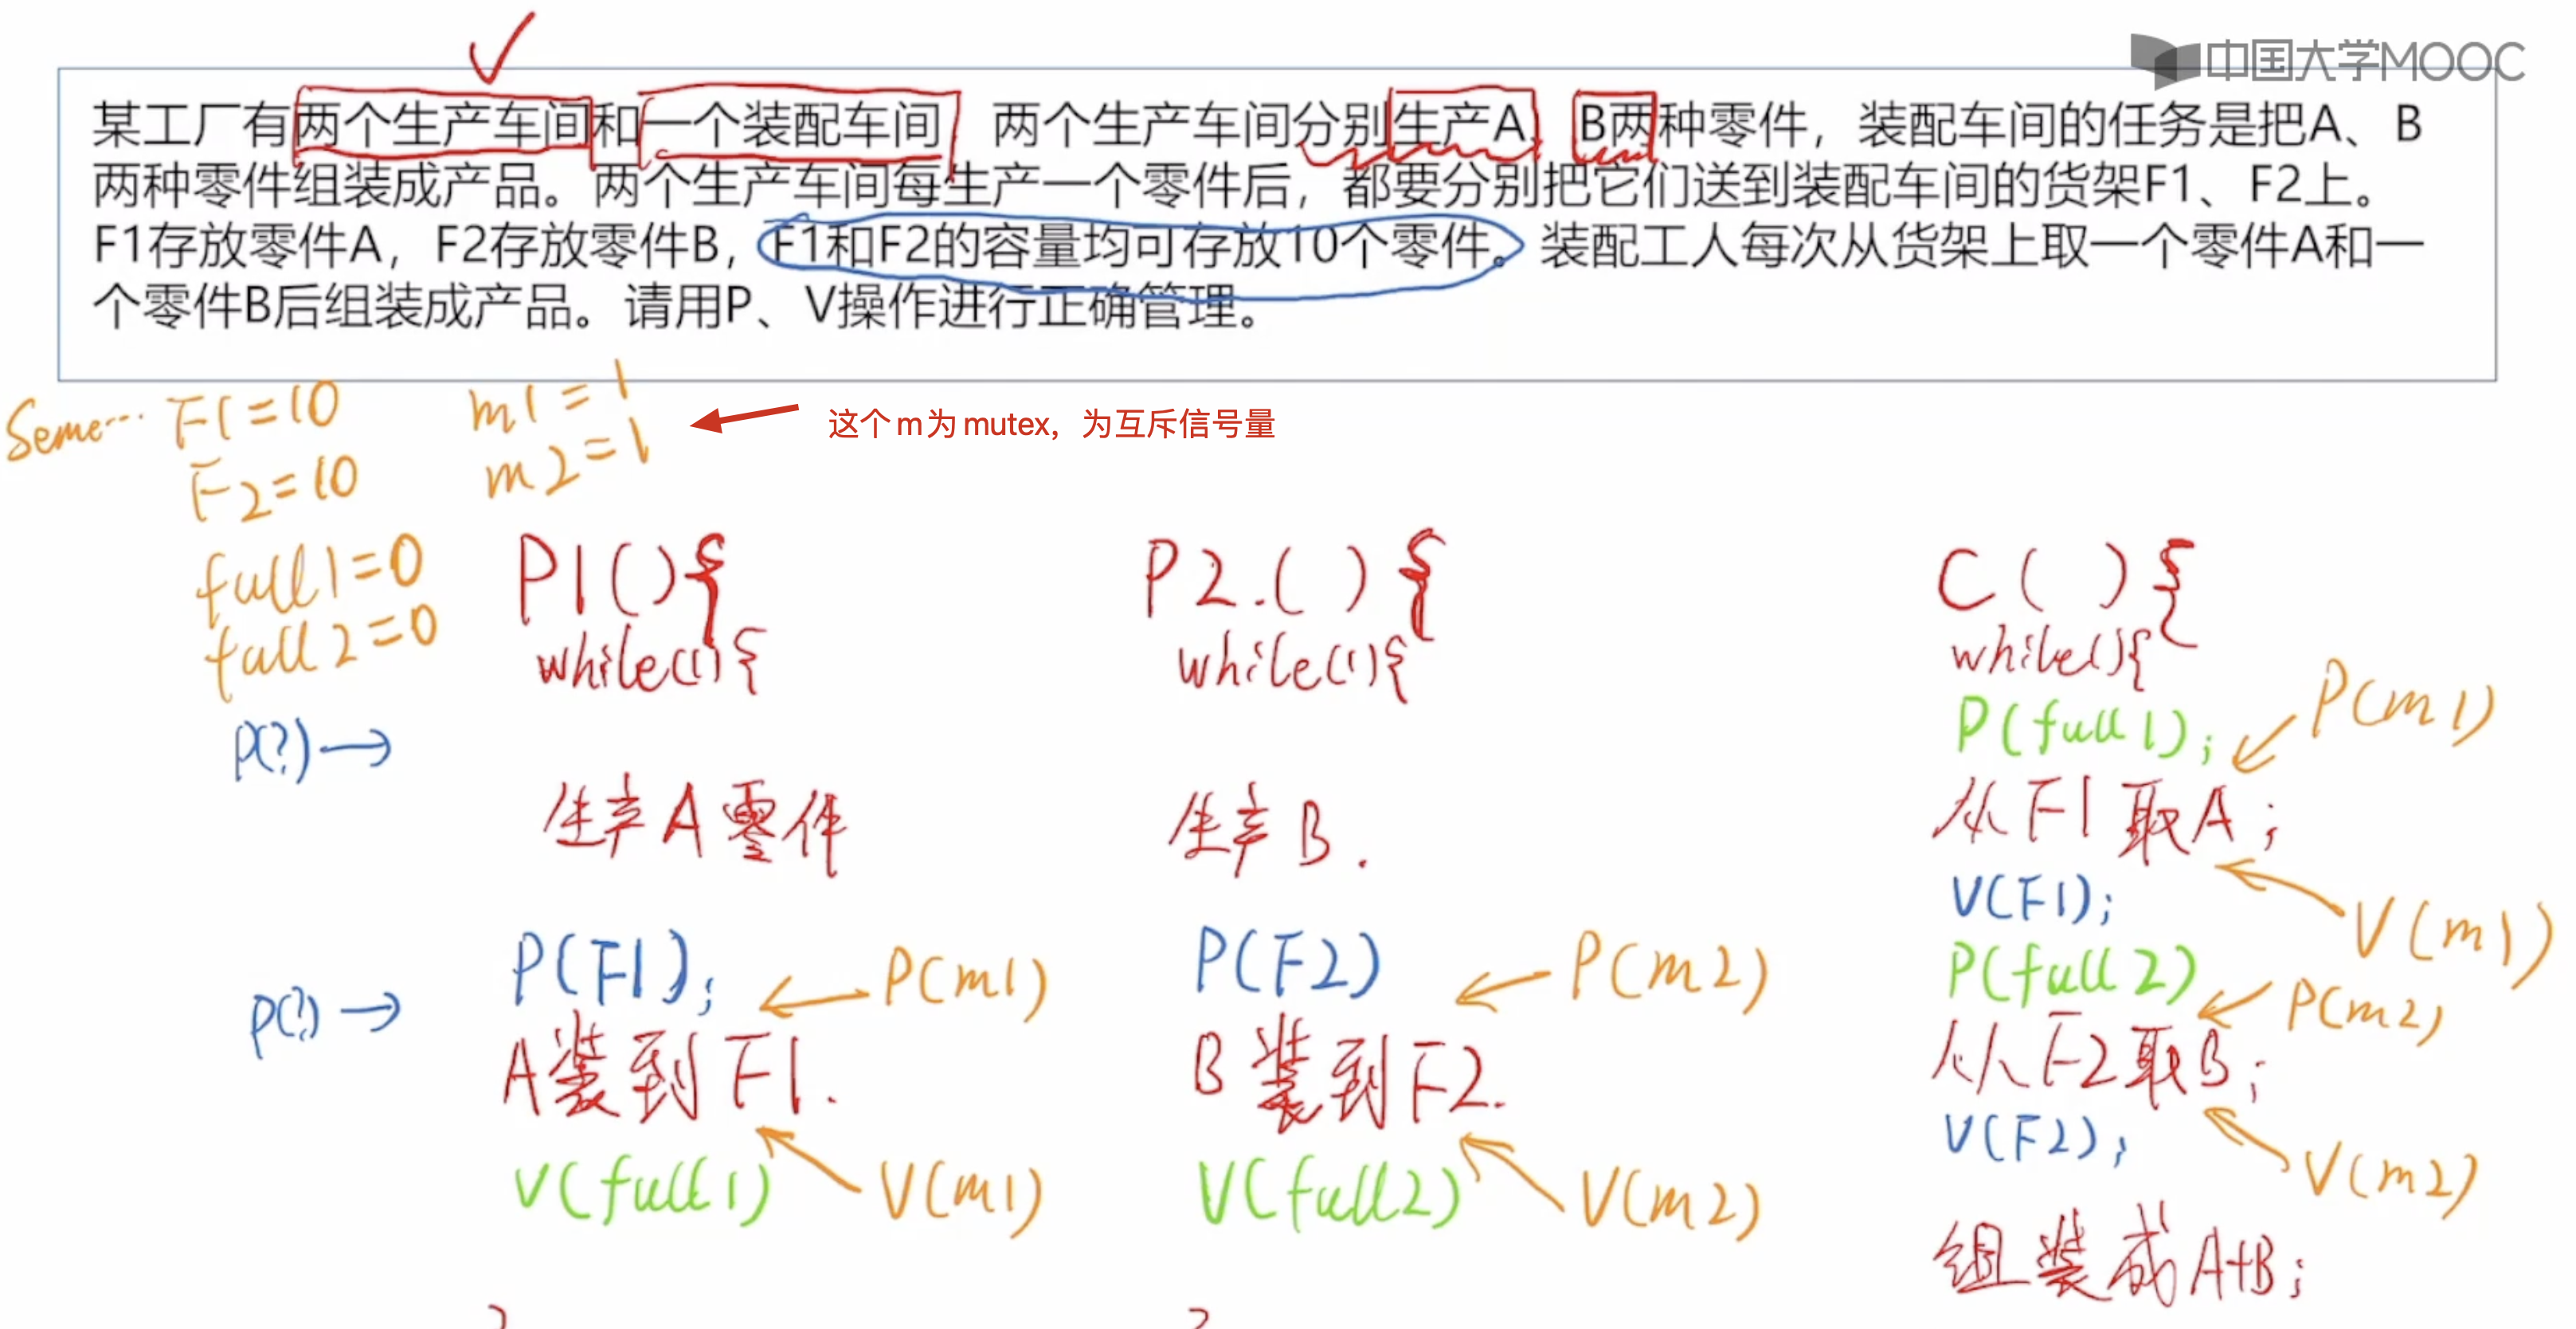 中国大学MOOC
某工厂有两个生产车间和一个装配车间，两个生产车间分别生产A、B两种零件，装配车间的任务是把A、B
两种零件组装成产品。两个生产车间每生产一个零件后，都要分别把它们送到装配车间的货架F1、F2上。
F1存放零件A，F2存放零件B，F1和F2的容量均可存放10个零件。装配工人每次从货架上取一个零件A和一
个零件B后组装成产品。请用P、V操作进行正确管理。
Seme... F1=10
F2=10
full1=0
full2=0
m1=1
m2=1
这个m为mutex，为互斥信号量
P(?)→
P(?)→
P1(){
while(1){
生产A零件
P(F1);
P(m1)
A装到F1.
V(m1)
V(full1)
P2.(){
while(1){
生产B.
P(F2)
P(m2)
B装到F2.
V(m2)
V(full2)
C(){
while(){
P(full1);
P(m1)
从F1取A;
V(m1)
V(F1);
P(full2)
P(m2)
从F2取B;
V(m2)
V(F2);
组装成A+B;